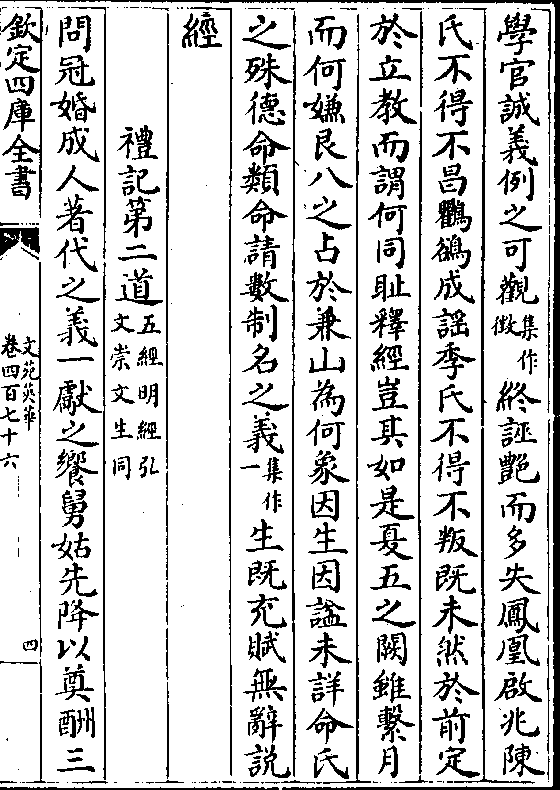 學官誠義例之可觀集作徵終誣艷而多失鳳凰啟兆陳
氏不得不昌鸜鵒成謡季氏不得不叛既未然於前定
於立教而謂何同耻釋經豈其如是夏五之闕雖繫月
而何嫌艮八之占於兼山為何象因生因謚未詳命氏
之殊德命類命請數制名之義集作一生既充賦無辭說
經
禮記第二道五經明經弘文崇文生同
問冠婚成人著代之義一獻之饗舅姑先降以奠酬三
欽定四庫全書
文苑英華
卷四百七十六
四